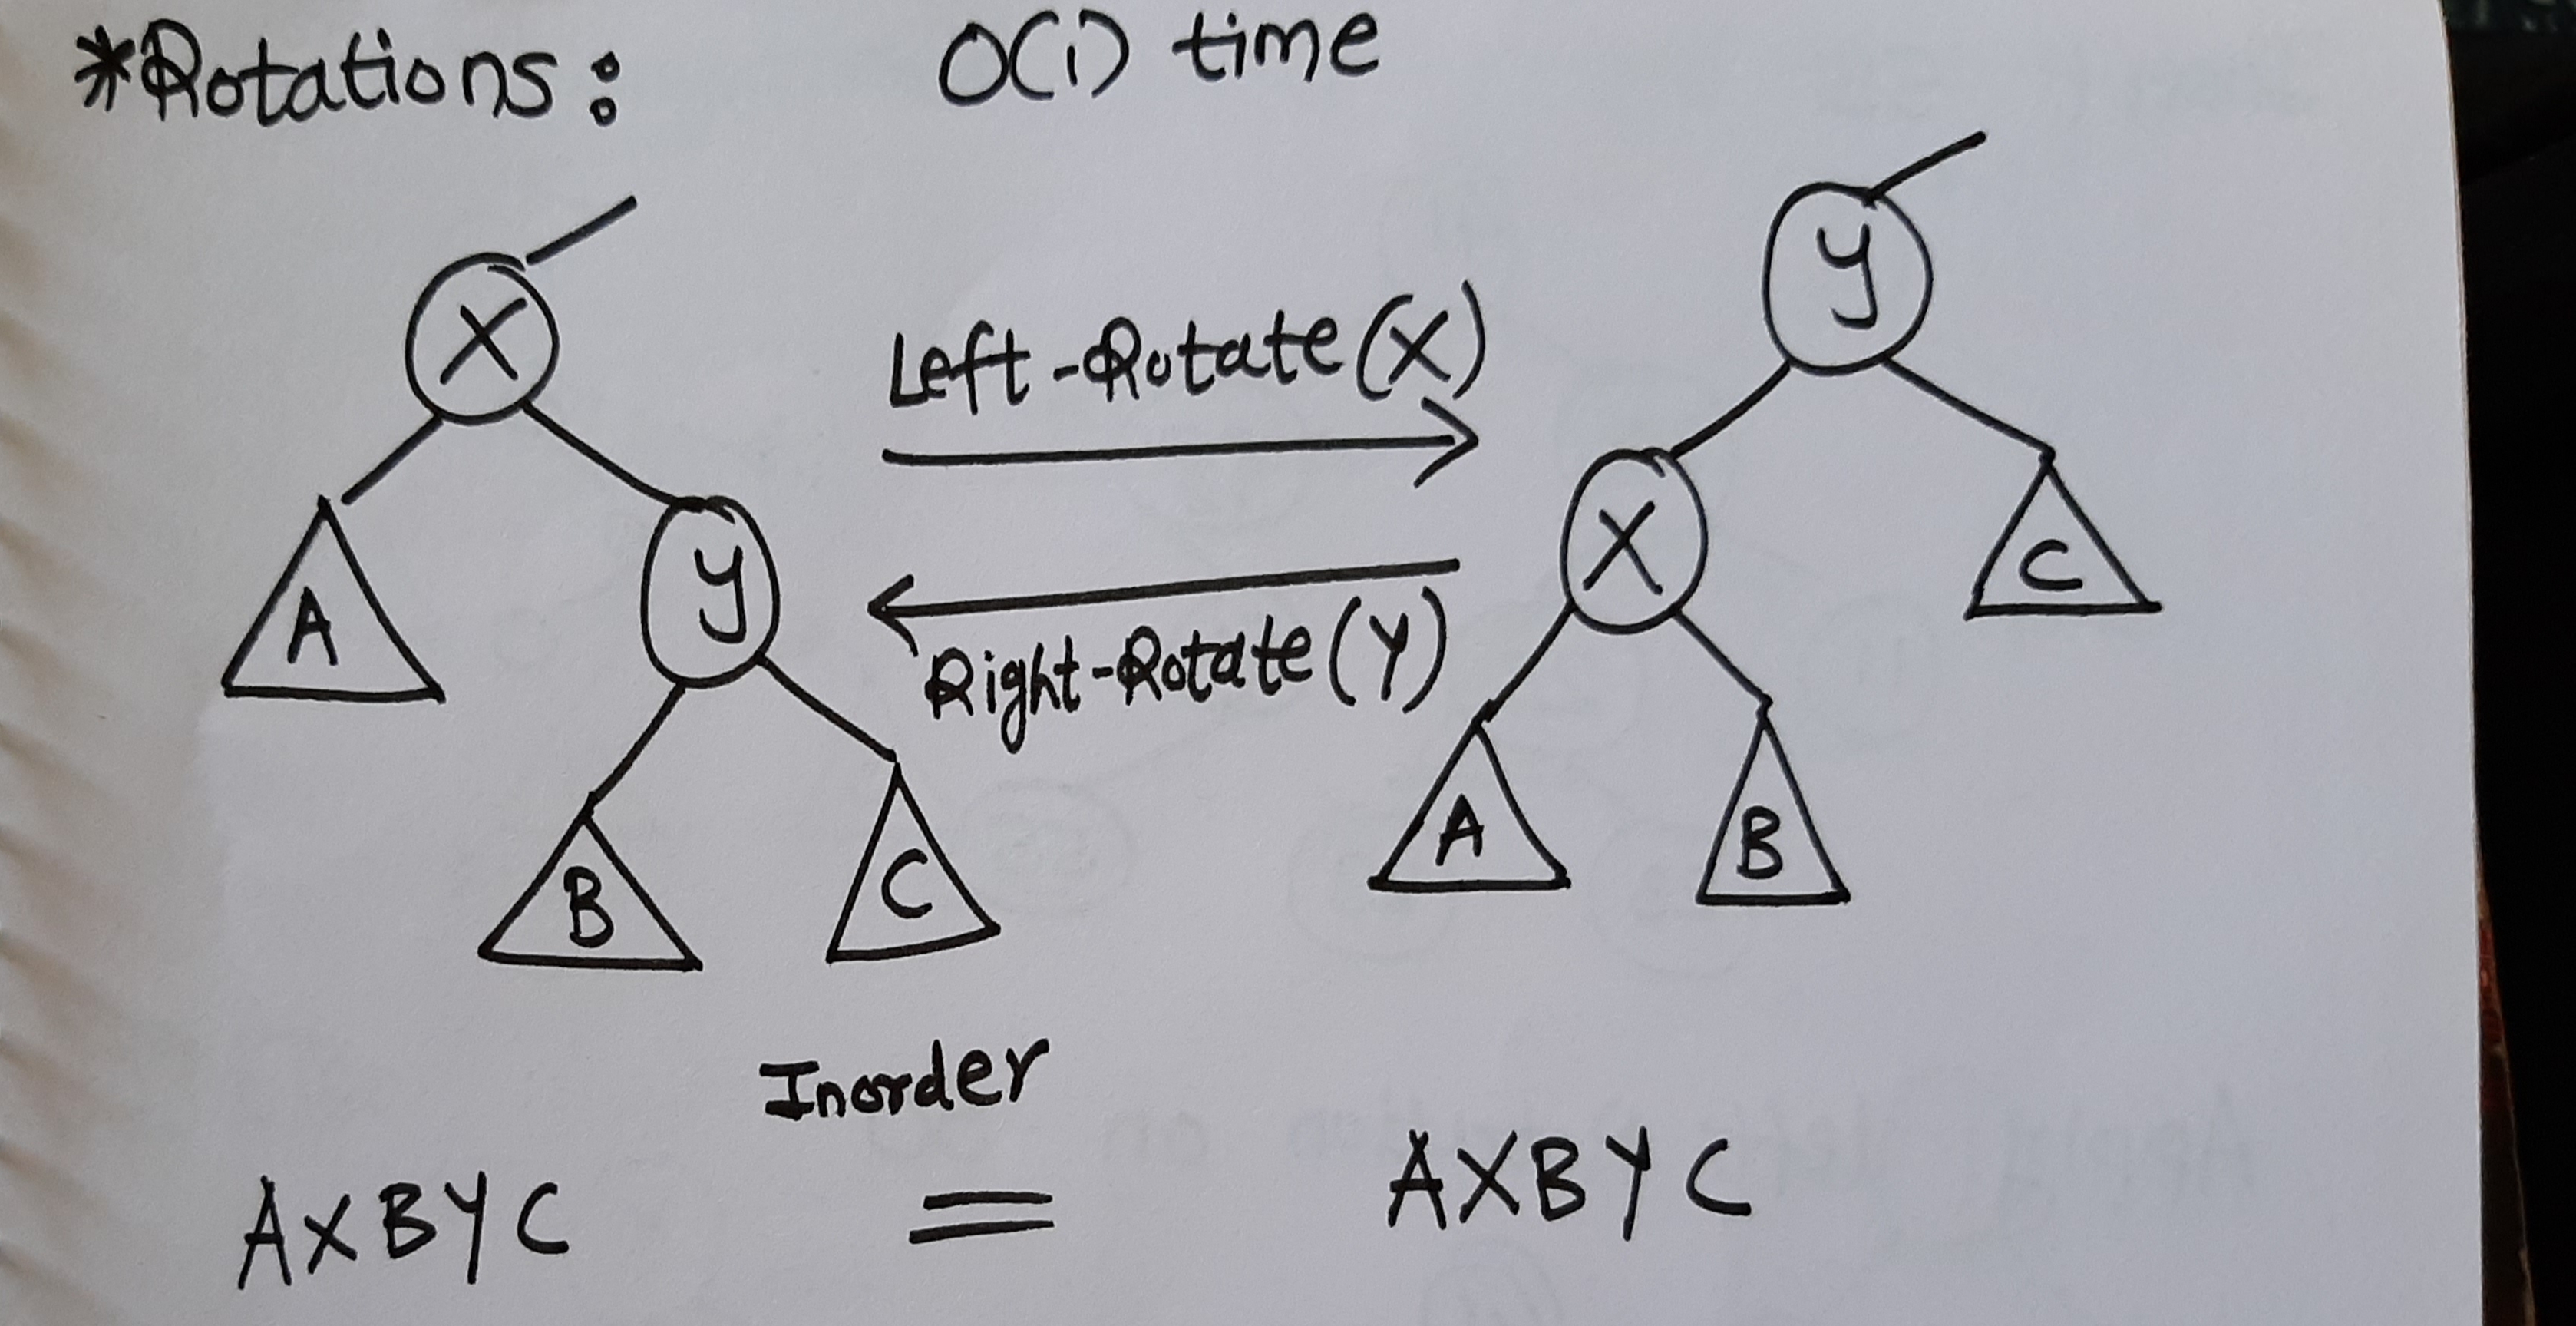 *Rotations: O(1) time
X
Y
Left-Rotate(X)
X
Y
A
C
Right-Rotate(Y)
A
B
B
C
Inorder
AXBYC = AXBYC